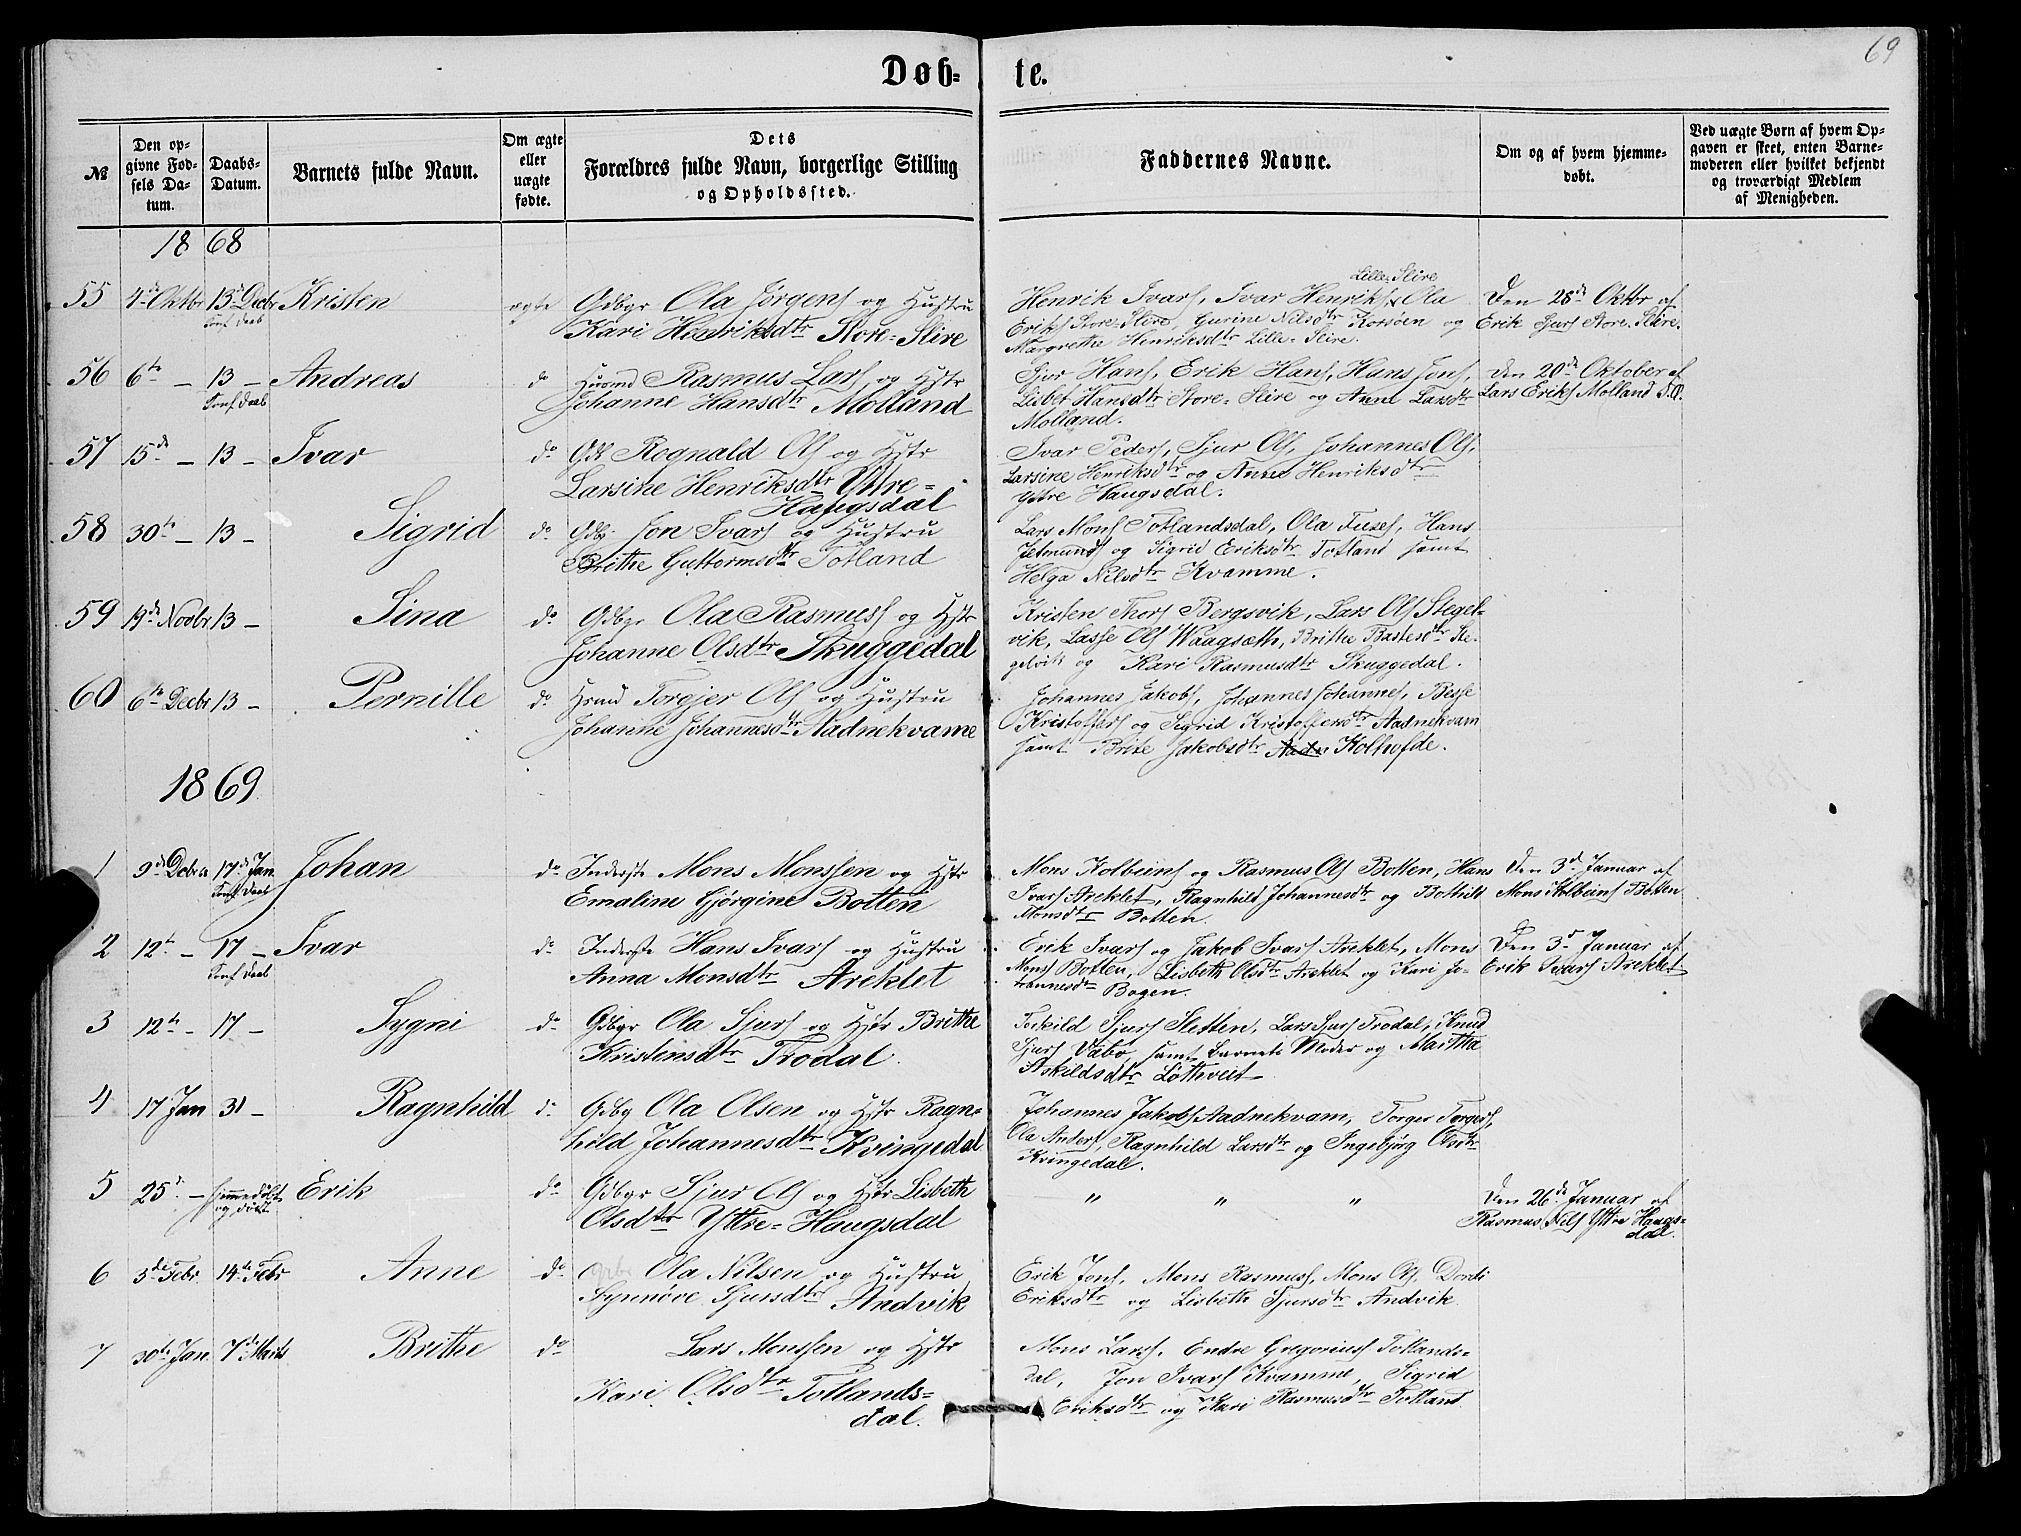 69
Døb- te.
№
Den op-
givne Fød-
sels Da-
tum.
Daabs-
Datum.
Barnets fulde Navn.
Om ægte
eller
uægte
fødte.
Dets
Forældres fulde Navn, borgerlige Stilling
og Opholdssted.
Faddernes Navne.
Om og af hvem hjemme-
døbt.
Ved uægte Børn af hvem Op-
gaven er skeet, enten Barne-
moderen eller hvilket bekjendt
og troværdigt Medlem
af Menigheden.
1868
55 4de Oktbr 13de Decbr Kristen
Konf. Daab
ægte Gdbgr Ola Jørgens og Hustru
Kari Henriksdtr Store-Slire
Lille-Slire
Henrik Ivars, Ivar Henriks, Ola
Eriks Store-Slire, Gurine Nilsdtr Kotsøen og
Margrethe Henriksdtr Lille-Slire.
Den 28de Oktbr af
Erik Sjurs Store-Slire.
56 6te — 13 — Andreas
Konf. Daab
do Huusmd Rasmus Lars og Hstr
Johanne Hansdtr Molland
Sjur Hans, Erik Hans, Hans Jons,
Lisbet Hansdtr Store-Slire og Anne Larsdtr
Molland.
Den 20de Oktober af
Lars Eriks Molland
57 15de — 13 — Ivar
do Gdb Rognald Ols og Hstr
Larsine Henriksdtr Yttre-
Haugsdal
Ivar Peders, Sjur Ols, Johannes Ols,
Larsine Henriksdtr og Anne Henriksdtr
Yttre Haugsdal.
58 30te — 13 — Sigrid
do Gdb. Jon Ivars og Hustru
Brithe Guttormsdtr Totland
Lars Mons Totlandsdal, Ola Hans
Jetmunds og Sigrid Eriksdtr Totland samt
Helga Nilsdtr Kvamme.
59 19de Novbr 13 — Sina
do Gdbgr Ola Rasmuss og Hstr
Johanne Olsdtr Skuggedal
Kristen Thors Bergsvik, Lars Ols Stegel-
vik, Lasse Ols Waagsæth, Brithe Bastesdtr Ste-
gelvik og Kari Rasmusdtr Skuggedal.
60 6te Decbr 13 — Pernille
do Hsmd Torgjer Ols og Hustru
Johanne Johannesdtr Aadnekvame
Johannes Jakobs, Johannes Johannes, Besse
Kristoffers og Sigrid Kristoffersdtr Aadnekvam
samt Brite Jakobsdtr Kolhofde.
1869
1 9de Debr 17de Jan Johan
Konf. Daab
do Inderste Mons Monssen og Hstr
Emaline Gjørgine Botten
Mons Kolbeins og Rasmus Ols Botten, Hans
Ivars Areklet, Ragnhild Johannesdtr og Bothild
Monsdtr Botten.
Den 3de Januar af
Mons Kolbeins Botten
2 12te — 17 — Ivar
Konf. Daab
do Inderste Hans Ivars og Hustru
Anna Monsdtr Areklet
Erik Ivars og Jakob Ivars Areklet, Mons
Mons Botten, Lisbeth Olsdtr Areklet og Kari Jo-
hannesdtr Bogen.
Den 3de Januar af
Erik Ivars Areklet
3 12te — 17 — Sygni
do Gdbgr Ola Sjurs og Hstr Brithe
Kristensdtr Trodal.
Torkild Sjurs Sletten, Lars Sjurs Trodal, Knud
Sjurs Vabø, samt Barnets Moder og Martha
Askildsdtr Løthveit
4 17 Jan 31 — Ragnhild
do Gdbg Ola Olsen og Hstr Ragn-
hild Johannesdtr Kvingedal
Johannes Jakobs Aadnekvam, Torger Torgers,
Ola Anders, Ragnhild Larsdtr og Ingebjørg Olsdtr
Kvingedal.
5 25de — hjemmedøbt Erik
og død
do Gdbgr Sjur Ols og Hstr Lisbeth
Olsdtr Yttre-Haugsdal
" " "
Den 26de Januar af
Rasmus Nils Yttre Haugs-
dal.
6 5de Febr. 14de Febr Anne
do Ola Nilsen og Hustru
Synnøve Sjursdtr Andvik
Erik Jons, Mons Rasmuss, Mons Ols, Dordi
Eriksdtr og Lisbeth Sjursdtr Andvik.
7 30te Jan. 7de Marts Brithe
do Lars Monssen og Hstr
Kari Olsdtr Totlands-
dal.
Mons Lars, Endre Gregorius Totlands-
dal, Jon Ivars Kvamme, Sigrid
Eriksdtr og Kari Rasmusdtr Totland.